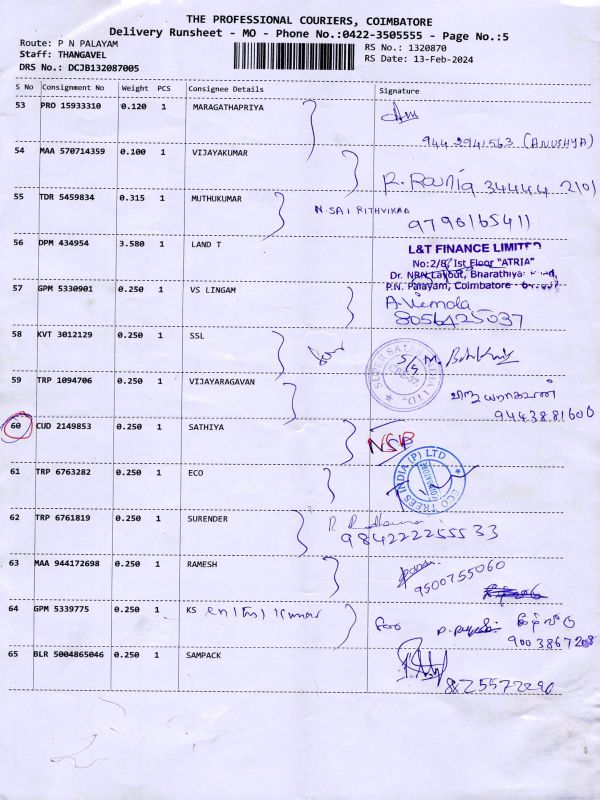 THE PROFESSIONAL COURIERS, COIMBATORE
Delivery Runsheet - MO - Phone No.:0422-3505555 - Page No.:5
Route: P N PALAYAM
RS No.: 1320870
Staff: THANGAVEL
RS Date: 13-Feb-2024
DRS No.: DCJB132087005
S No Consignment No Weight PCS Consignee Details Signature
53 PRO 15933310 0.120 1 MARAGATHAPRIYA
944 2941563 (ANUSHYA)
54 MAA 570714359 0.100 1 VIJAYAKUMAR
55 TDR 5459834 0.315 1 MUTHUKUMAR
N.SAI RITHVIKAA
9790165411
56 DPM 434954 3.580 1 LAND T
L&T FINANCE LIMITED
No:2/8, Ist Floor "ATRIA"
Dr. NRN Layout, Bharathiyar
P.N. Palayam, Coimbatore
57 GPM 5330901 0.250 1 VS LINGAM
A. Vimola
8056425037
58 KVT 3012129 0.250 1 SSL
for
59 TRP 1094706 0.250 1 VIJAYARAGAVAN
விஜயராகவன்
9443881600
60 CUD 2149853 0.250 1 SATHIYA
61 TRP 6763282 0.250 1 ECO
ECO TREES INDIA (P) LTD
COIMBATORE
62 TRP 6761819 0.250 1 SURENDER
63 MAA 944172698 0.250 1 RAMESH
9500755060
64 GPM 5339775 0.250 1 KS
65 BLR 5004865046 0.250 1 SAMPACK